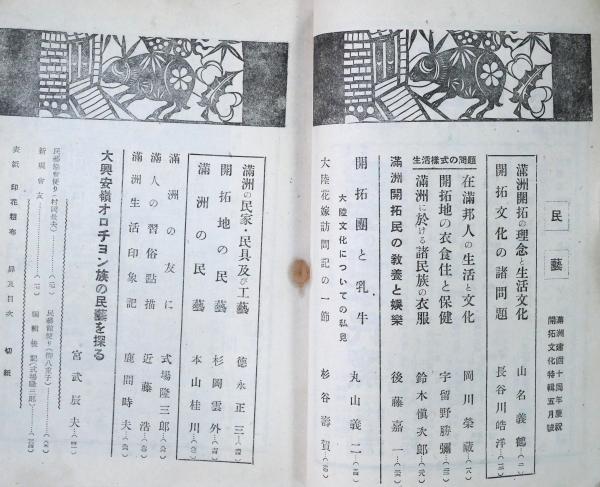 民藝
滿洲建國十周年慶祝
開拓文化特輯五月號
滿洲開拓の理念と生活文化 山名義鶴
開拓文化の諸問題 長谷川皓洋
生活樣式の問題
在滿邦人の生活と文化 岡川榮藏
開拓地の衣食住と保健 宇留野勝彌
滿洲に於ける諸民族の衣服 鈴木愼次郎
滿洲開拓民の教養と娯樂 後藤嘉一
開拓團と乳牛 丸山義二
大陸文化についての私見
大陸花嫁訪問記の一節 杉谷壽賀
滿洲の民家・民具及び工藝 德永正三
開拓地の民藝 杉岡雲外
滿洲の民藝 本山桂川
滿洲の友に 式場隆三郎
滿人の習俗點描 近藤浩
滿洲生活印象記 鹿間時夫
大興安嶺オロチヨン族の民藝を探る
宮武辰夫
民藝協會便り(村岡景夫)
民藝館便り(柳八重子)
新規會友
編輯後記(式場隆三郎)
表紙 印花麤布
扉及目次 切紙